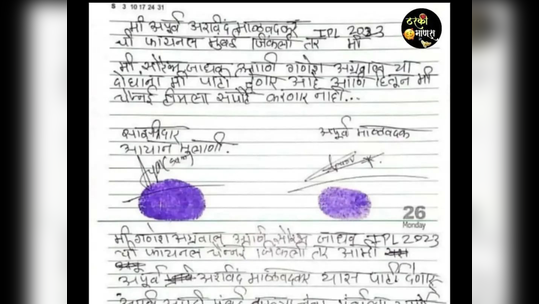 S 3 10 17 24 31
ठरकी माणूस
मी अपूर्व अरविंद माळवदकर IPL 2023
ची फायनल मुंबई जिंकली तर मी
मी सौरभ जाधव आणि गणेश अग्रवाल या
दोघांना मी पार्टी देणार आहे आणि हितून मी
चेन्नई टीमला सपोर्ट करणार नाही...
साक्षीदार
अपूर्व माळवदकर
आयान मुलाणी.
26
Monday
मी गणेश अग्रवाल आणि सौरभ जाधव IPL 2023
ची फायनल चेन्नई जिंकली तर आम्ही
अपूर्व अरविंद माळवदकर यास पार्टी देणार